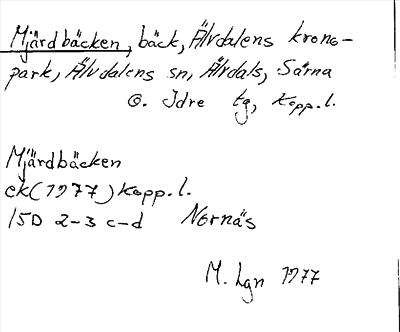 Mjärdbäcken, bäck, Älvdalens krono-
park, Älvdalens sn, Älvdals, Särna
o. Idre tg, Kopp.l.
Mjärdbäcken
ek(1977) Kopp.l.
15D 2-3 c-d Nornäs
M. Lgn 1977